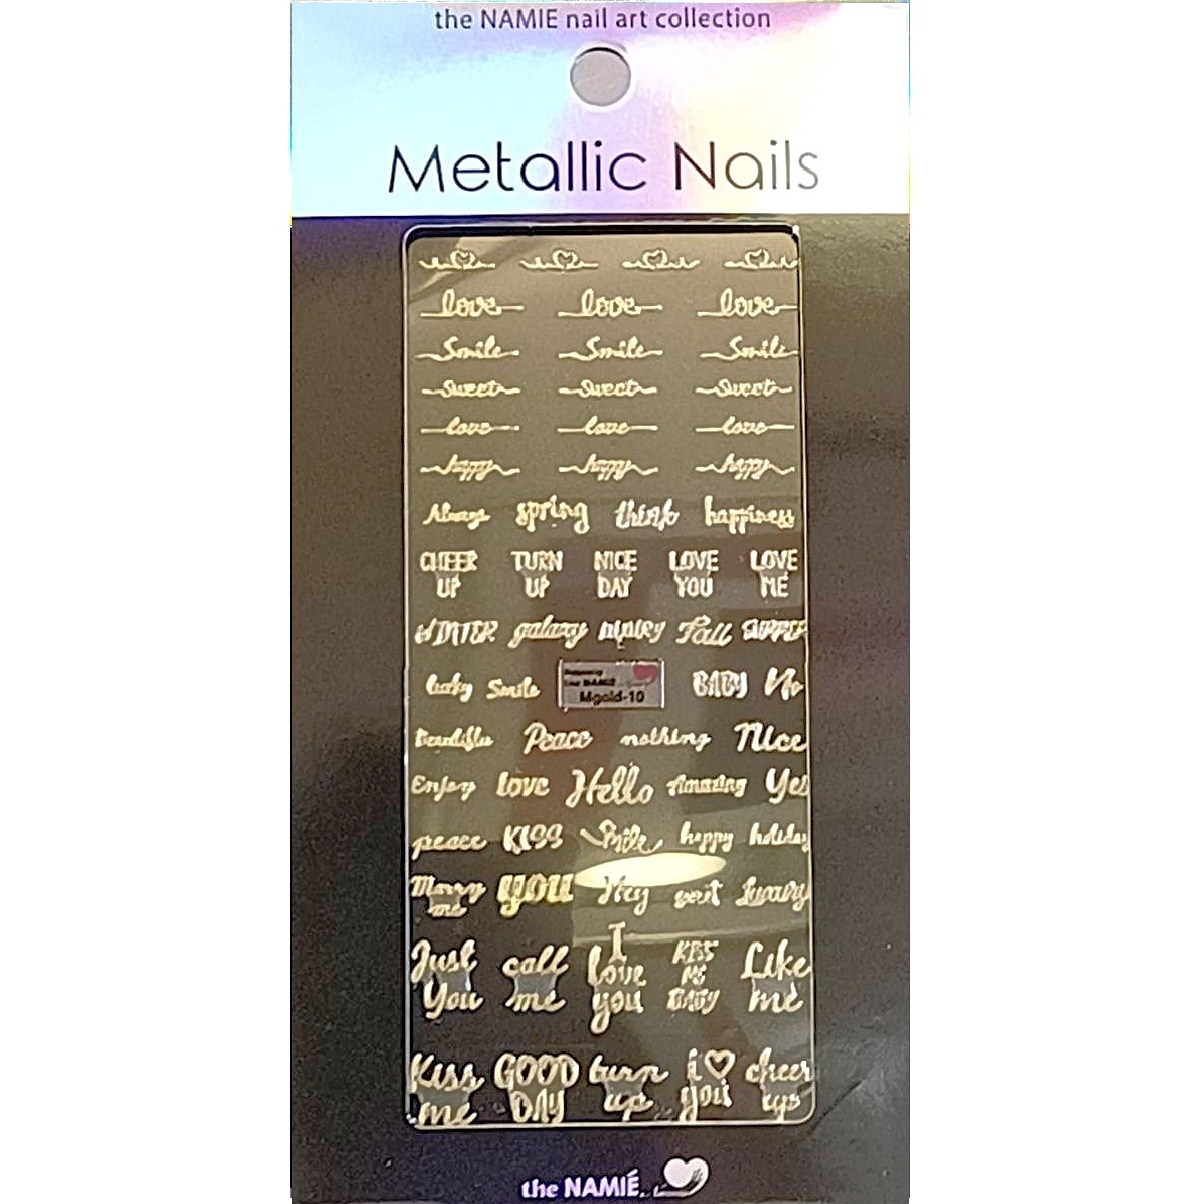 the NAMIE nail art collection
Metallic Nails
love love love
Smile Smile Smile
sweet sweet sweet
love love love
happy happy happy
Always spring think happiness
CHEER TURN NICE LOVE LOVE
UP UP DAY YOU ME
WINTER galaxy Fall
lucky Smile BABY No
Mgold-10
Beautiful Peace nothing Nice
Enjoy love Hello Amazing Yes
peace KISS Smile happy holiday
Marry YOU Hey Luxury
me
Just call I KISS Like
You me love ME me
you BABY
Kiss GOOD turn i you cheer
me DAY up up
the NAMIÉ